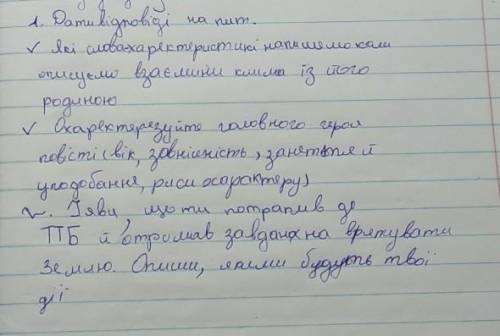 1. Дати відповіді на пит.
✓ Які слова характеристикі напишемо коли
описуємо взаємини клима із його
родиною
✓ Охарактерезуйте головного героя
повісті (вік, зовнішність, заняття й
уподобання, риси характеру)
✓. Уяви, що ти потрапив до
ПБ й отримав завдання врятувати
Землю. Опиши, якими будуть твої
дії